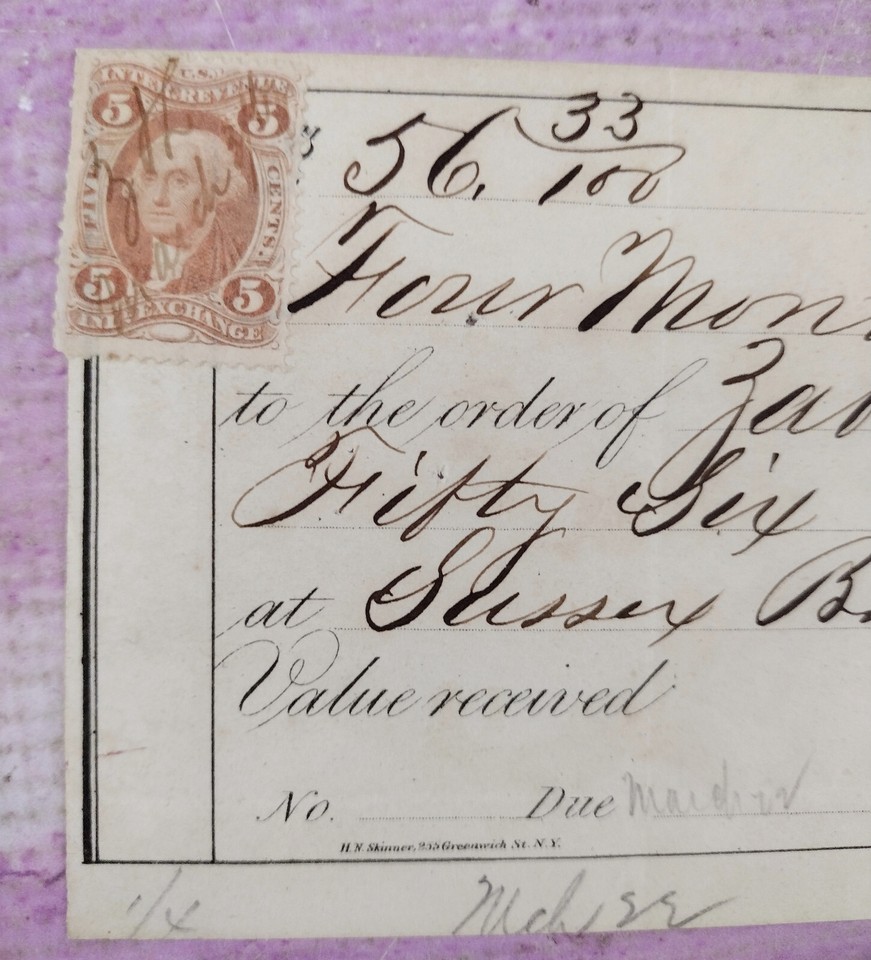 U.S.
INTER. REVENUE
5 5
FIVE CENTS.
5 5
INL. EXCHANGE
56. 33/100
Four Mon
to the order of Zab
Fifty Six
at Sussex B
Value received
No. Due March 22
H. N. Skinner, 235 Greenwich St. N.Y.
1/4 Mch 22